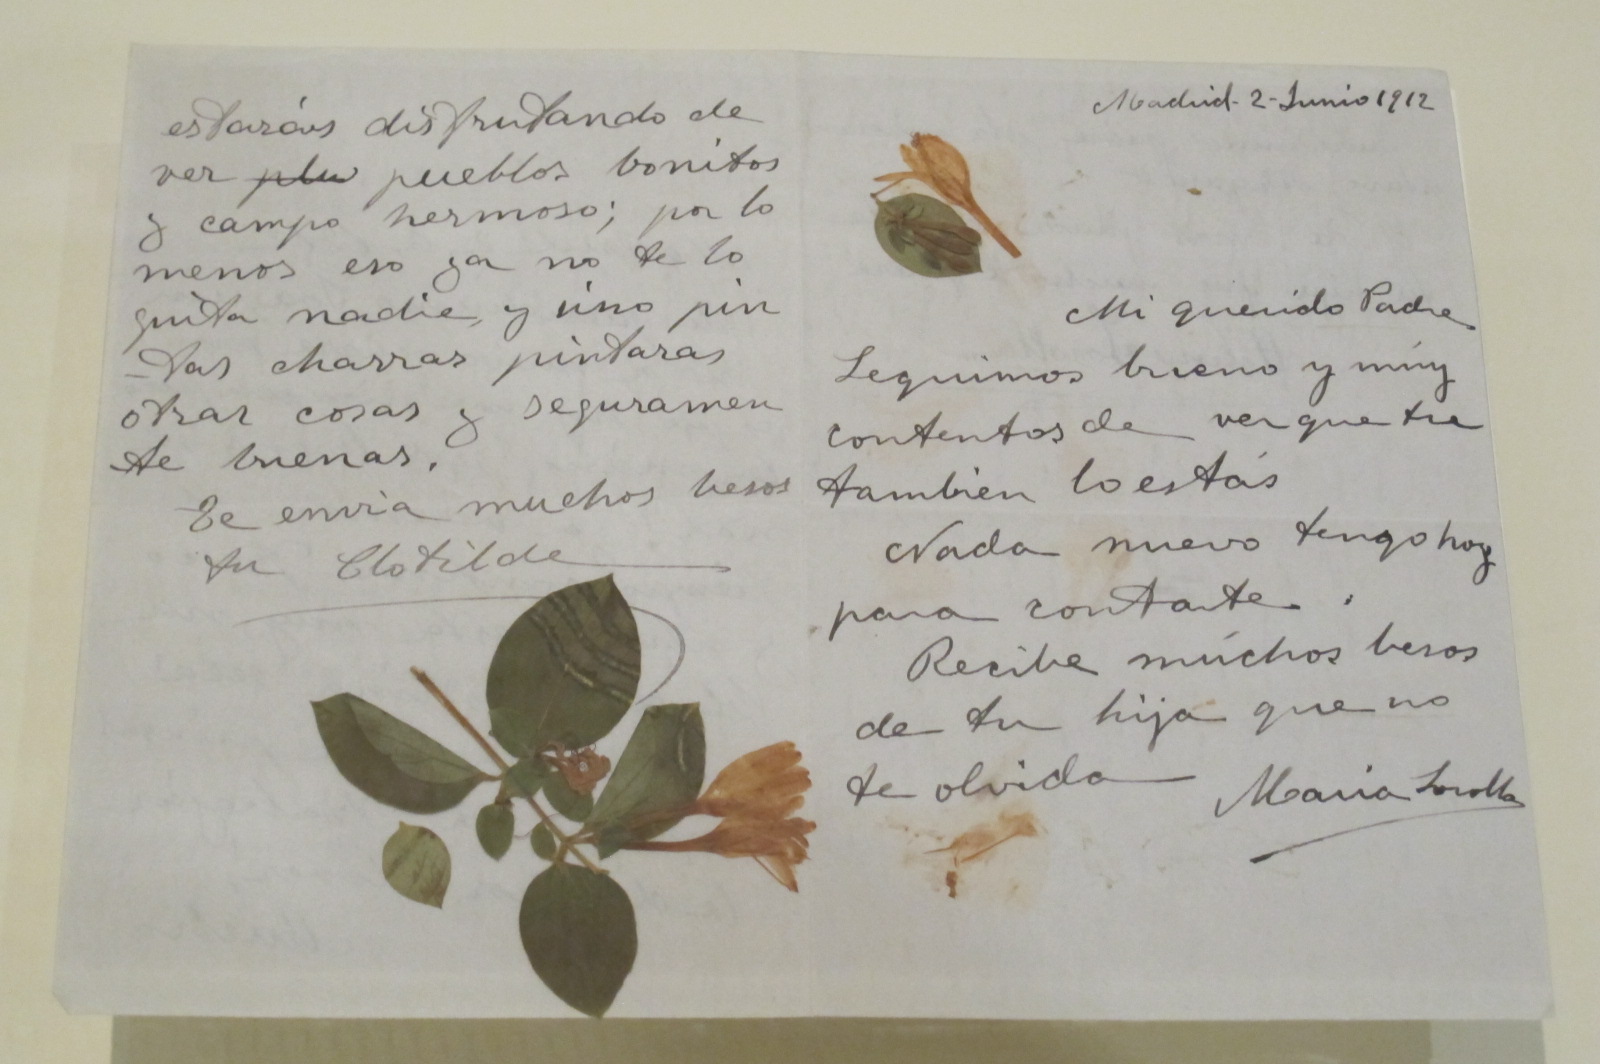 estaráis disfrutando de
ver plu pueblos bonitos
y campo hermoso; por lo
menos eso ya no te lo
quita nadie, y sino pin
-tas charras pintaras
otras cosas y seguramen
-te buenas.
Te envia muchos besos
tu Clotilde
Madrid-2-Junio 1912
Mi querido Padre
Seguimos bueno y múy
contentos de ver que tu
tambien lo estás
Nada nuevo tengo hoy
para contarte.
Recibe múchos besos
de tu hija que no
te olvida
Maria Sorolla